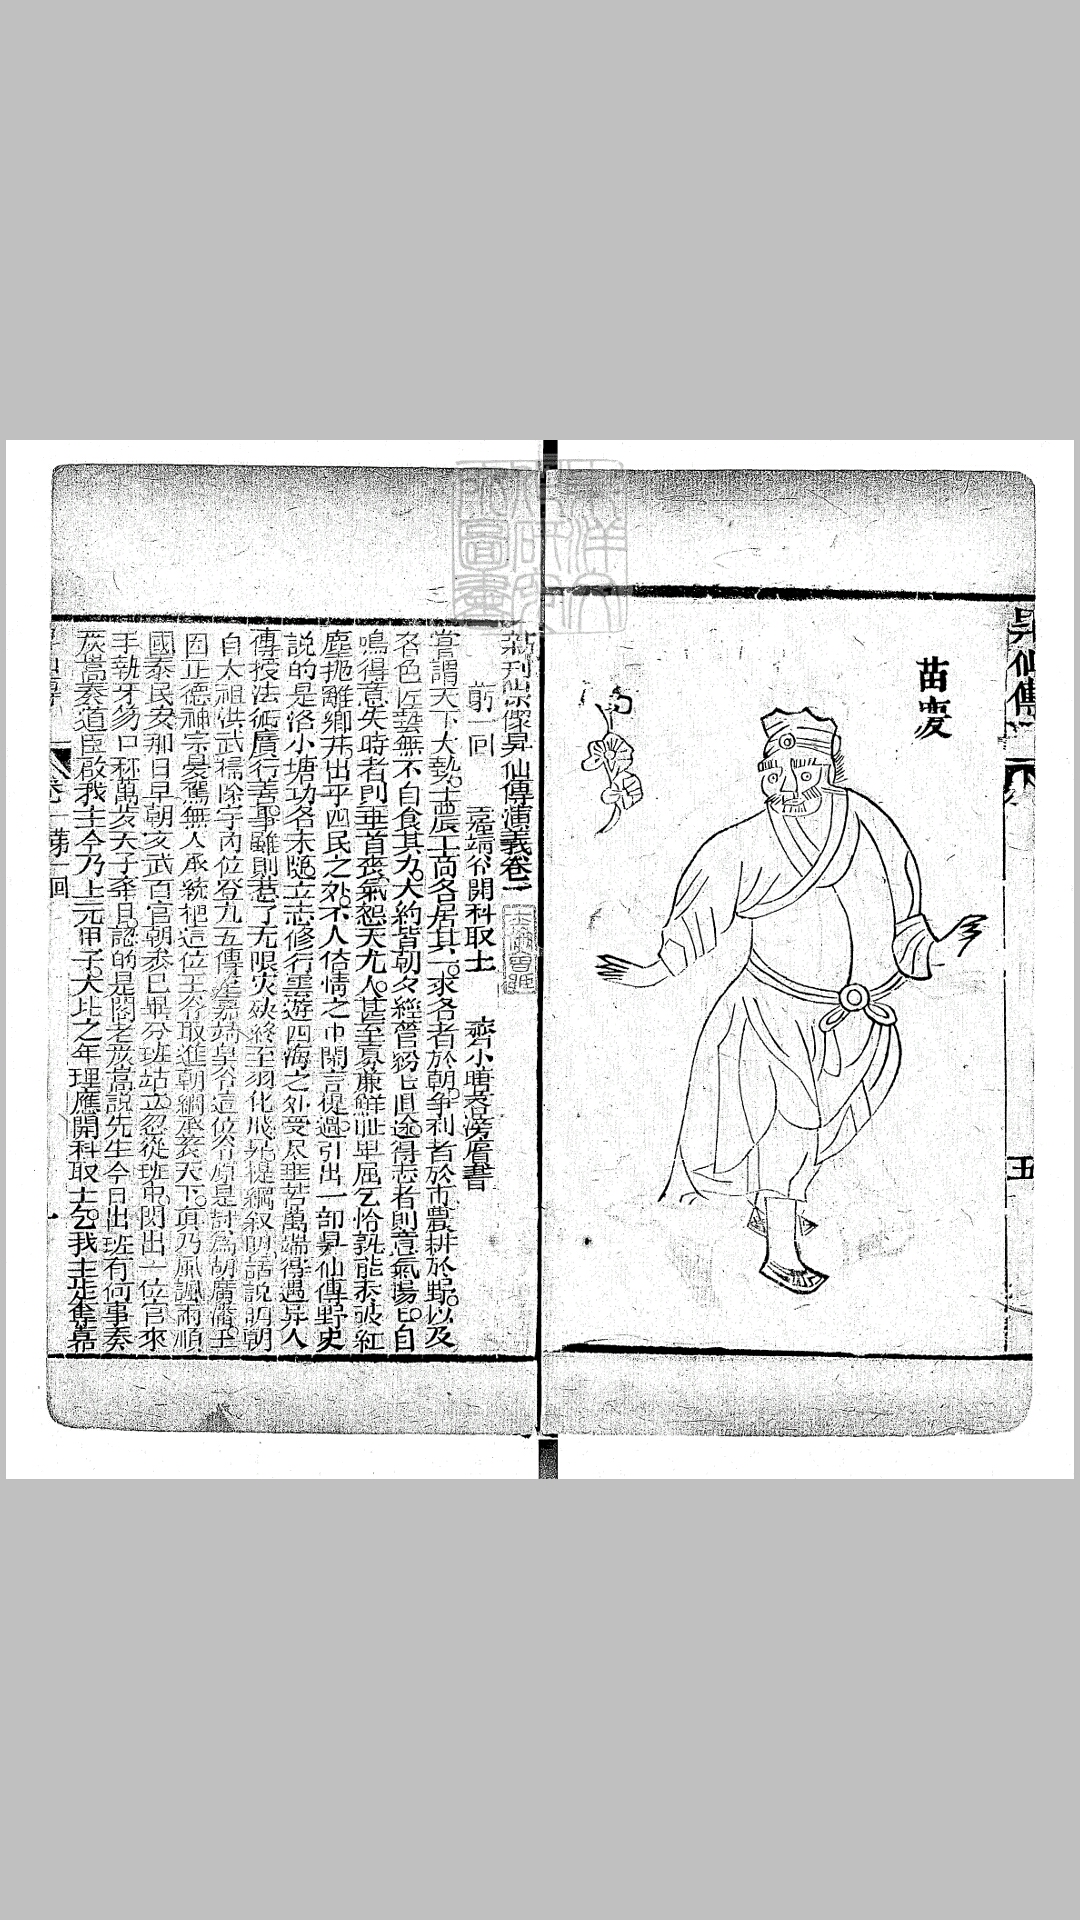 昇仙傳
五
苗慶
新刊宗傑昇仙傳演義卷一
前一回 嘉靖爺開科取士 齊小塘衣濕傍唇書
嘗謂天下大勢士農工商各居其一求名者於朝爭利者於市農耕於野以及
各色匠藝無不自食其力大約皆朝夕經營紛匕且途得志者則意氣揚匕自
鳴得意失時者則垂首喪氣怨天尤人甚至寡廉鮮恥卑屈乞怜孰能泰破紅
塵抛離鄉井出乎四民之外不人俗情之中閑言提過引出一部昇仙傳野史
說的是洛小塘功名未隨立志修行雲遊四海之外受尽重苦萬端得遇异人
傳授法術廣行善事雖則惹了无限灾殃終至羽化飛昇提綱叙明話說明朝
自太祖洪武掃除宇內位登九五傳至嘉靖皇爺這位爺原是封為胡廣藩王
因正德神宗晏駕無人承統把這位王爺取進朝綱承衮天下真乃風調雨順
國泰民安那日早朝文武百官朝叅已畢分班站立忽從班中閃出一位官來
手執牙笏口称萬岁天子弇目認的是閣老嚴嵩說先生今日出班有何事奏
嚴嵩奏道臣啟我主今乃上元甲子大比之年理應開科取士乞我主定奪嘉
卷一 第一回